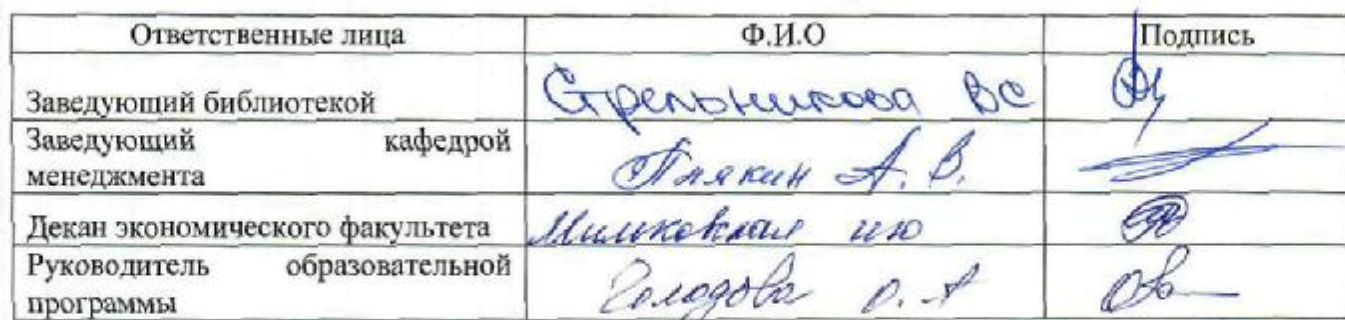 Ответственные лица Ф.И.О Подпись
Заведующий библиотекой Стрельникова ВС
Заведующий кафедрой
менеджмента А. В.
Декан экономического факультета ИЮ
Руководитель образовательной
программы Голодова О. А